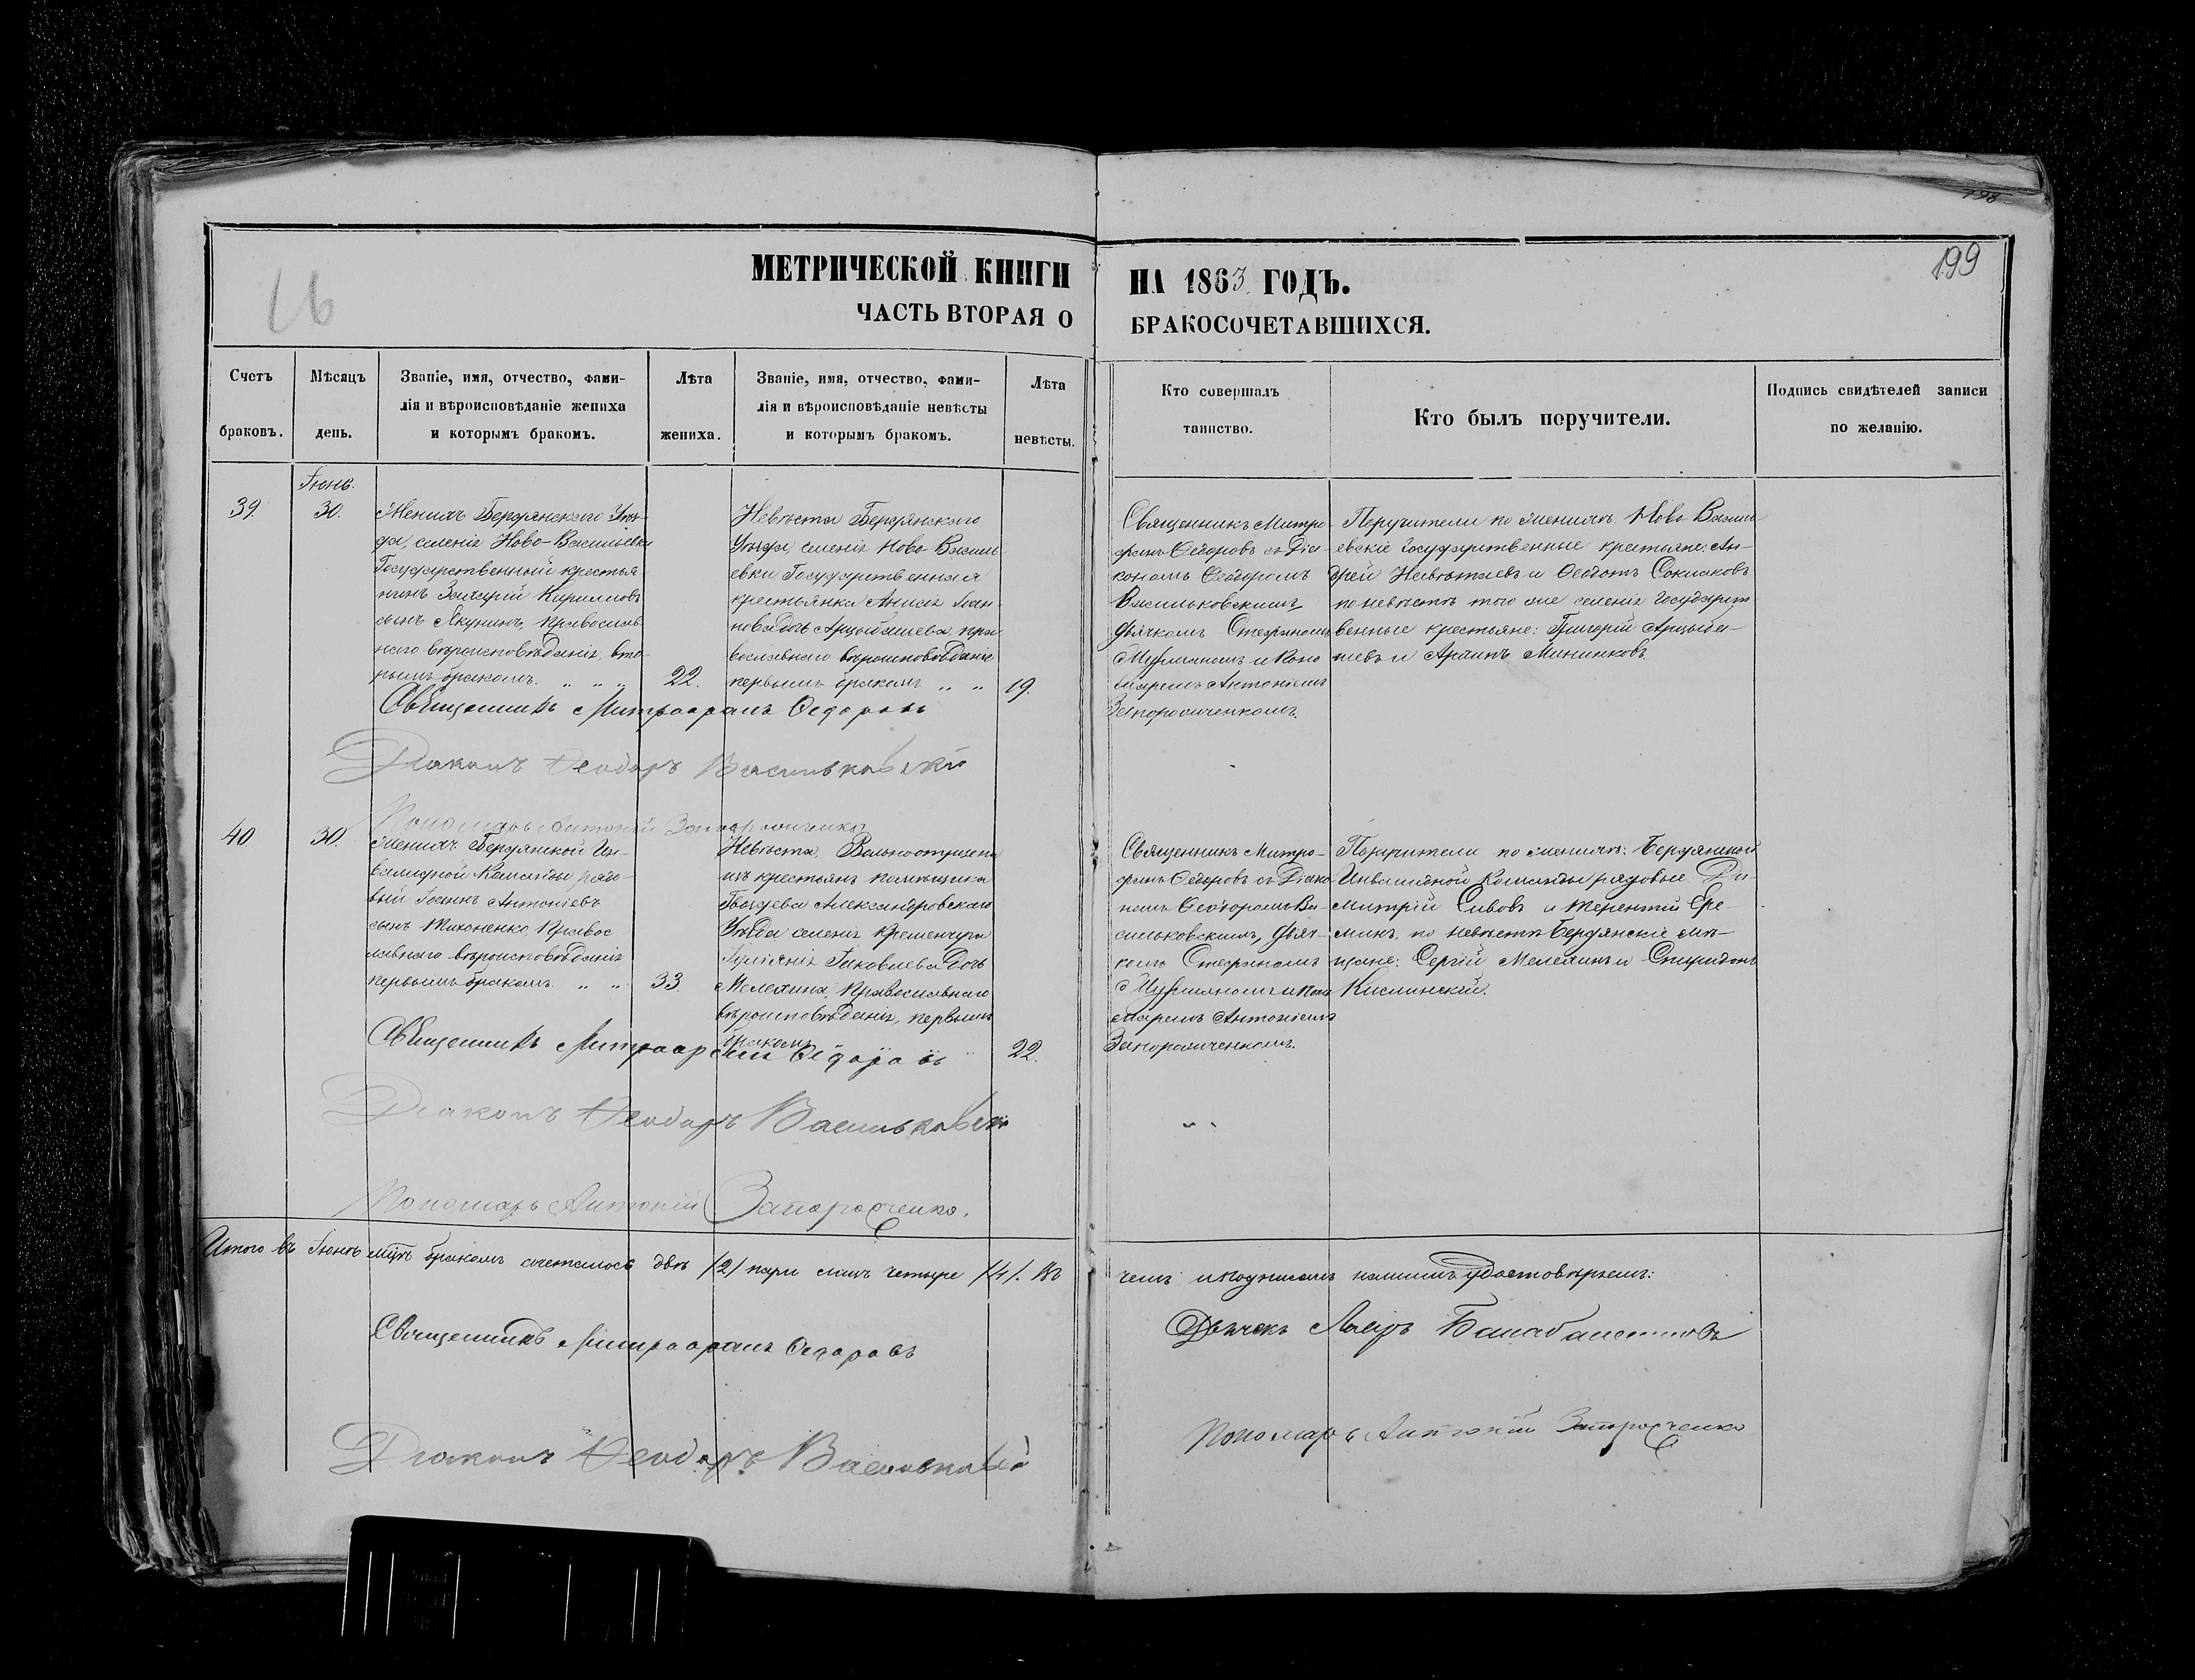 198
199
16
МЕТРИЧЕСКОЙ КНИГИ НА 1863 ГОДЪ.
ЧАСТЬ ВТОРАЯ О БРАКОСОЧЕТАВШИХСЯ.
Счетъ браковъ.
Мѣсяцъ день.
Званіе, имя, отчество, фами-
лія и вѣроисповѣданіе жениха
и которымъ бракомъ.
Лѣта жениха.
Званіе, имя, отчество, фами-
лія и вѣроисповѣданіе невѣсты
и которымъ бракомъ.
Лѣта невѣсты.
Кто совершалъ
таинство.
Кто былъ поручители.
Подпись свидѣтелей записи
по желанію.
Іюнь.
39.
30.
Женихъ Бердянскаго Уѣз-
да, селенія Ново-Васильевки
Государственный крестья
нинъ Захарій Кириловъ
сынъ Якунинъ, православ
наго вѣроисповѣданія, вто
рымъ бракомъ. „ „ „
22.
Невѣста Бердянскаго
Уѣзда, селенія Ново Василь
евки Государственная
крестьянка Анисія Іоан
нова дочь Арцыбашева, пра
вославнаго вѣроисповѣданія
первымъ бракомъ „ „
19.
Священникъ Митро
фанъ Ѳедоровъ съ Діа
кономъ Ѳеодоромъ
Васильковскимъ
дьячкомъ Стефаномъ
и Поно
маремъ Антоніемъ
Запорожченкомъ.
Поручители по женихѣ Ново Василь
евскіе Государственные крестьяне: Ан-
дрей и Ѳеодотъ
по невѣстѣ того же селенія Государст
венные крестьяне: Григорій Арцыба-
шевъ и Мининковъ.
Священникъ Митрофанъ Ѳедоровъ
Діаконъ Ѳеодоръ Васильковскій
Пономарь Антоній Запорожченко
40
30.
Женихъ Бердянской Ин-
валидной Команды рядо-
вый Іоаннъ Антоніевъ
сынъ Тихоненко, Правос
лавнаго вѣроисповѣданія
первымъ бракомъ. „ „
33.
Невѣста, Вольноотпущена
изъ крестьянъ помѣщика
Александровскаго
Уѣзда селенія Кременчуга
Іуліанія Іаковлева дочь
Мелехина, Православнаго
вѣроисповѣданія, первымъ
бракомъ
22.
Священникъ Митро-
фанъ Ѳедоровъ съ Діако
номъ Ѳеодоромъ Ва-
сильковскимъ, дьяч-
комъ Стефаномъ
и Поно
маремъ Антоніемъ
Запорожченкомъ.
Поручители по женихѣ: Бердянской
Инвалидной Команды рядовые Ди-
митрій Сивовъ и Терентій Ере-
минъ, по невѣстѣ Бердянскіе мѣ-
щане: Сергій Мелехинъ и Спиридонъ
Кислинскій.
Священникъ Митрофанъ Ѳедоровъ
Діаконъ Ѳеодоръ Васильковскій
Пономарь Антоній Запорожченко.
Итого въ Іюнѣ мцѣ бракомъ сочеталось двѣ /2/ пары лицъ четыре /4/. Въ чемъ и подписомъ нашимъ удостовѣряемъ:
Священникъ Митрофанъ Ѳедоровъ
Дьячекъ
Діаконъ Ѳеодоръ Васильковскій
Пономарь Антоній Запорожченко